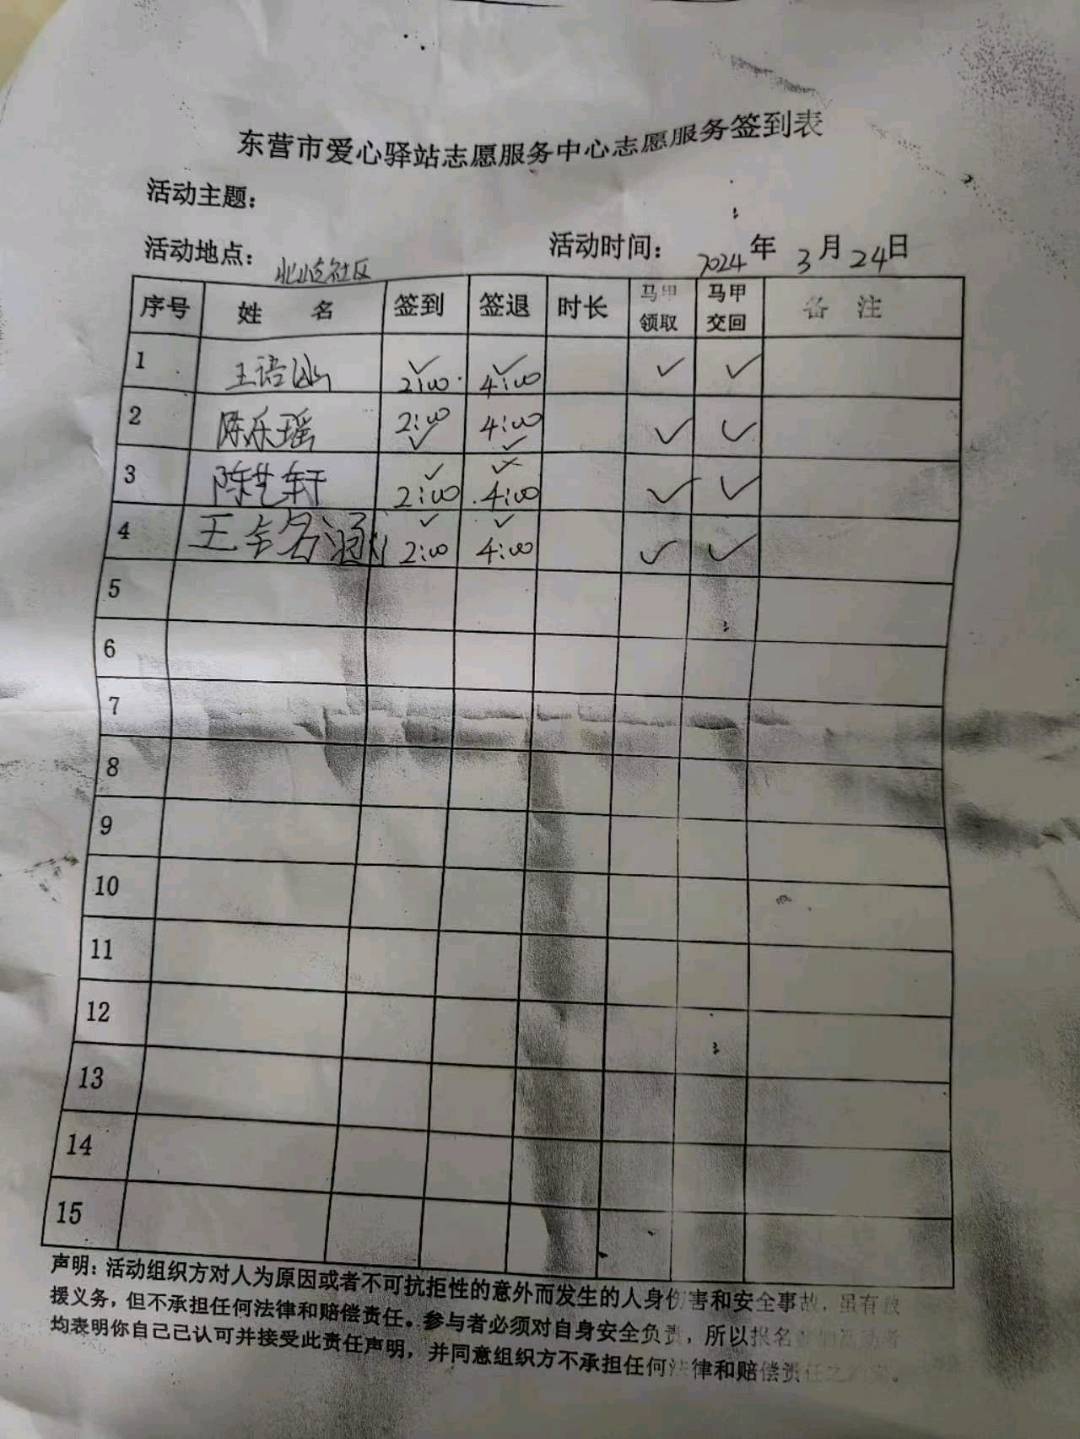 东营市爱心驿站志愿服务中心志愿服务签到表
活动主题：
活动地点： 社区 活动时间： 2024年3月24日
序号 姓 名 签到 签退 时长 马甲领取 马甲交回 备 注
1 王语 ✓ 2:00 ✓ 4:00 ✓ ✓
2 陈乐瑶 2:00 ✓ 4:00 ✓ ✓ ✓
3 陈艺轩 ✓ 2:00 4:00 ✓ ✓
4 王 ✓ 2:00 ✓ 4:00 ✓ ✓
5
6
7
8
9
10
11
12
13
14
15
声明：活动组织方对人为原因或者不可抗拒性的意外而发生的人身伤害和安全事故，虽有
援义务，但不承担任何法律和赔偿责任。参与者必须对自身安全负责，所以报名
均表明你自己己认可并接受此责任声明，并同意组织方不承担任何法律和赔偿责任